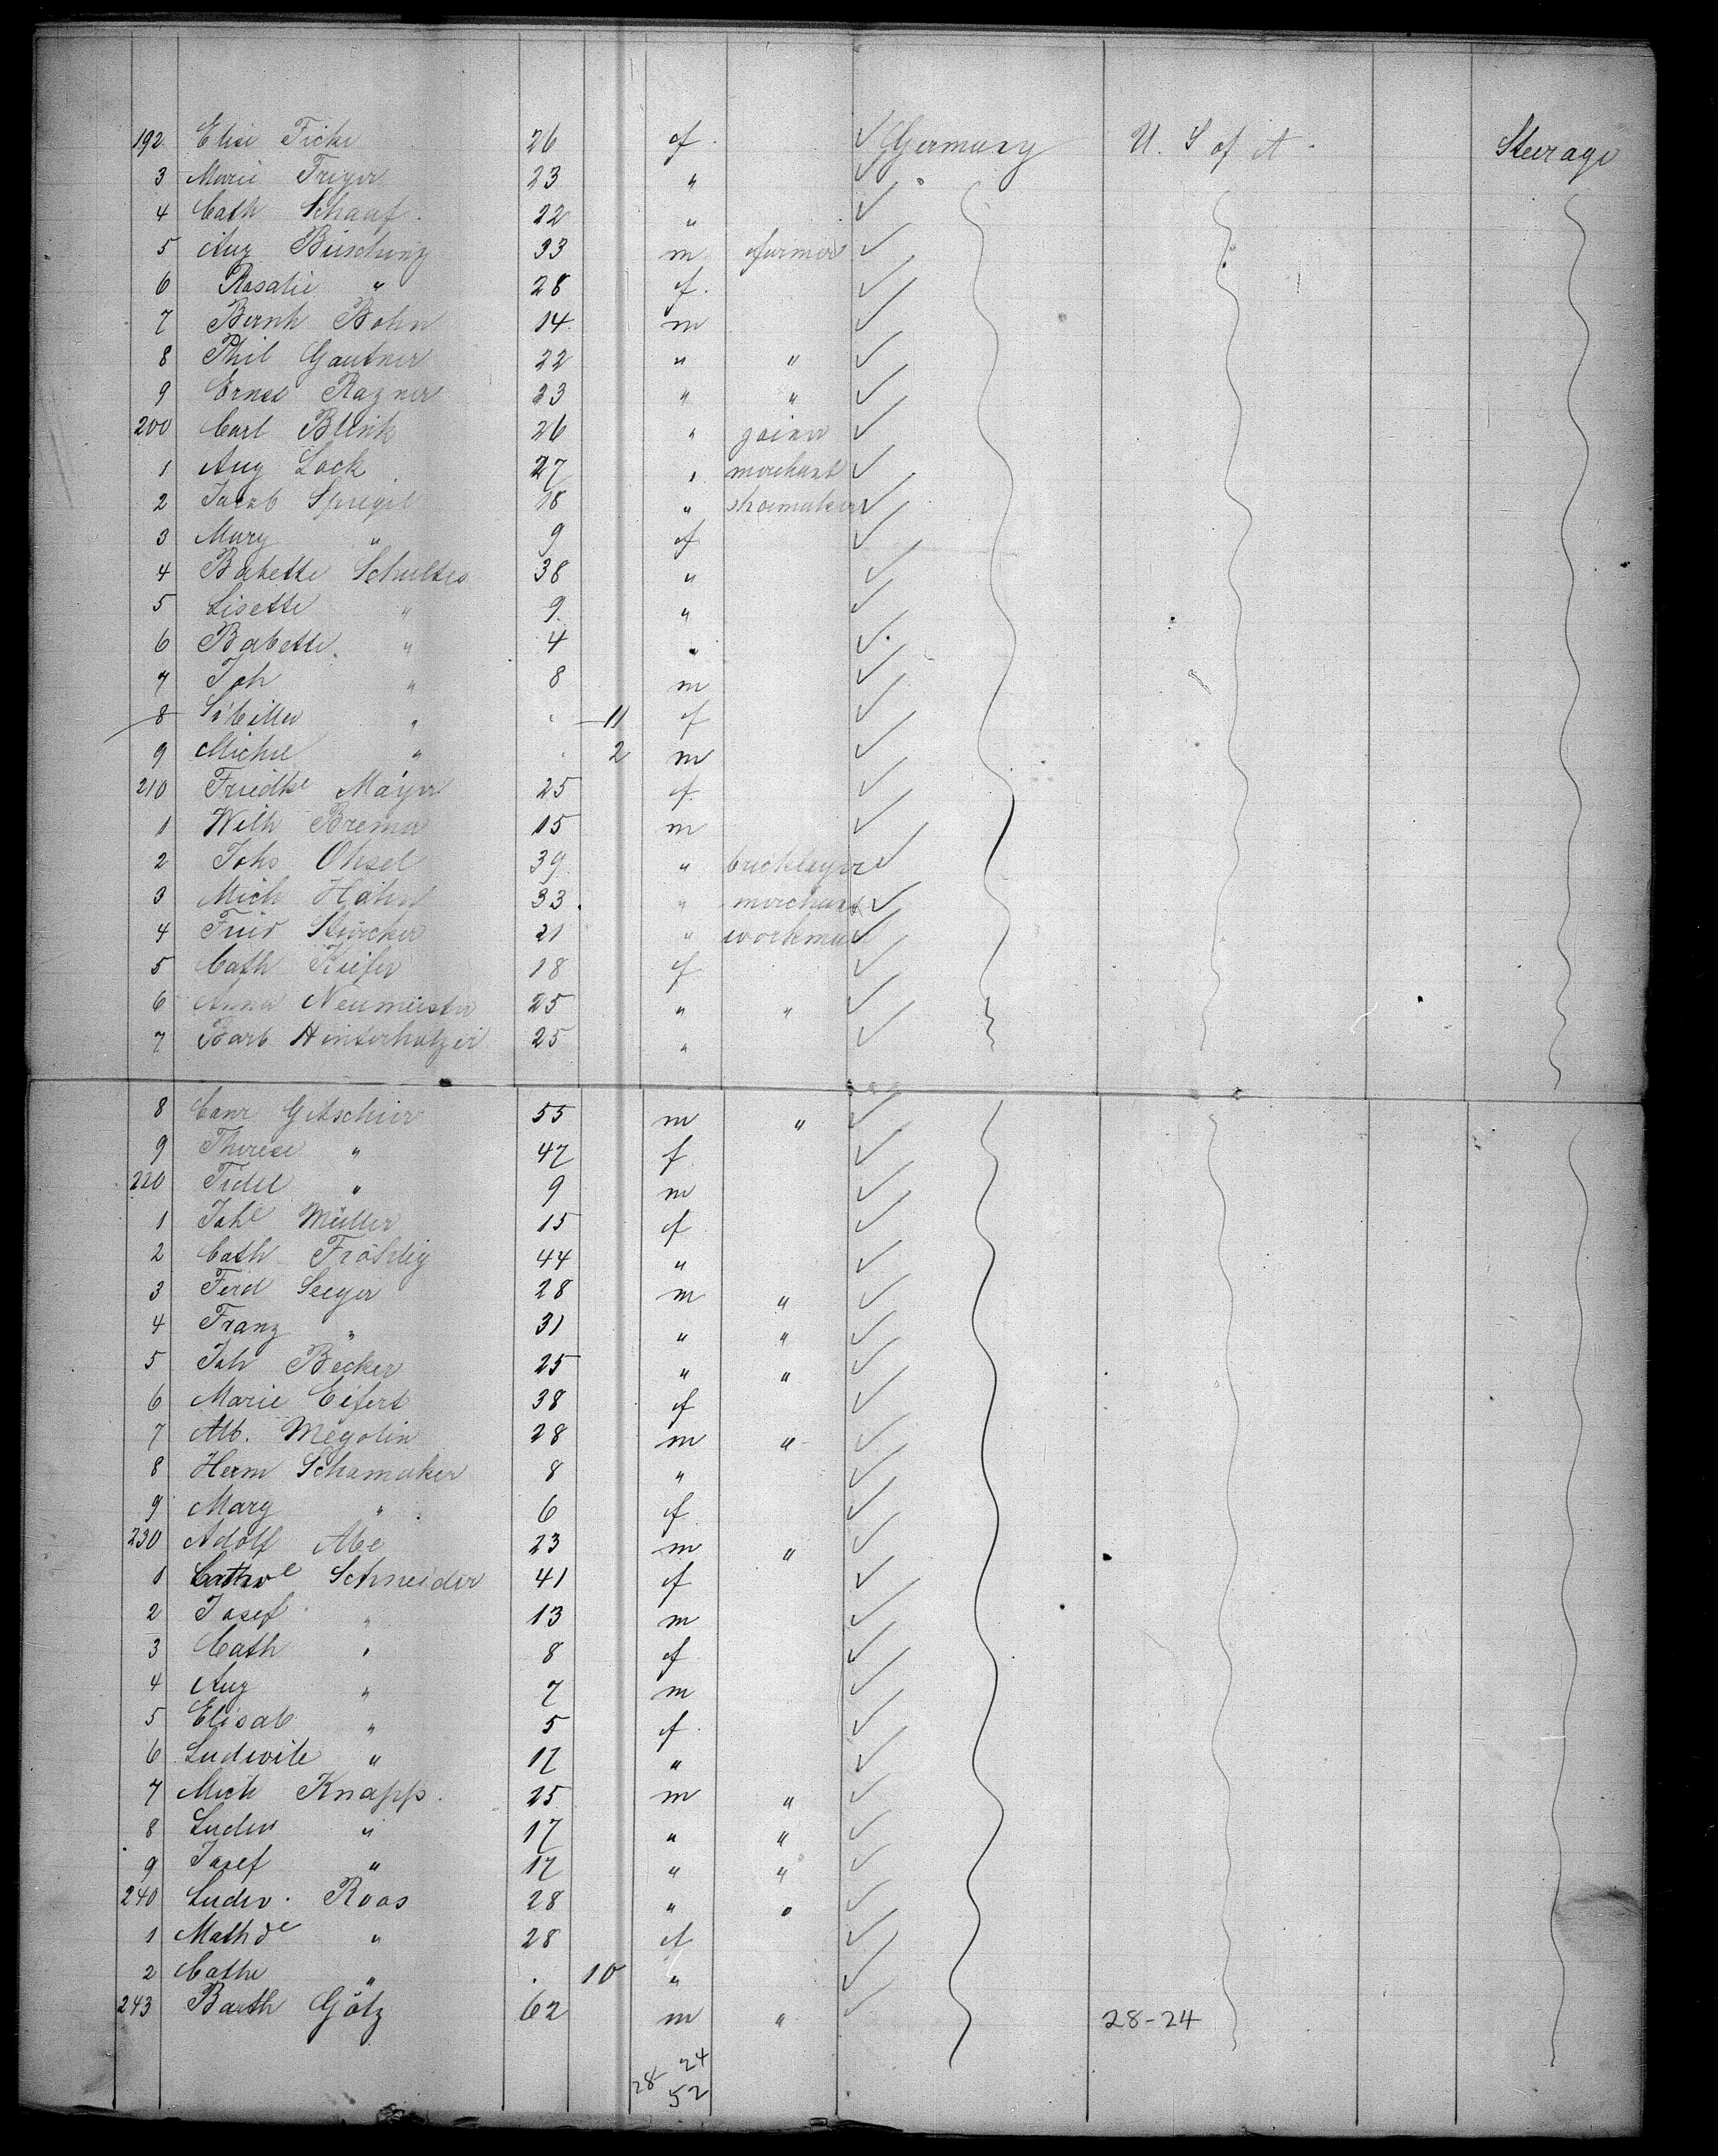 192. Elise Ficke 26 f. ✓ Germany U. S of A. Steerage
3 Marie Freyer 23 " ✓
4 Cath Schaaf. 22 " ✓
5 Aug Büsching 33 m farmer ✓
6 Rosalie " 28 f. ✓
7 Bernh Bohn 14 m ✓
8 Phil Gautner 22 " " ✓
9 Ernst Razner 23 " " ✓
200 Carl Blink 26 " joiner ✓
1 Aug Lock 27 " merchant ✓
2 Jacob Spiegel 18 " shoemaker ✓
3 Mary " 9 f ✓
4 Babette Schultes 38 " ✓
5 Lisette " 9 " ✓
6 Babette " 4 " ✓
7 Joh " 8 m ✓
8 " 11 f ✓
9 Michel " 2 m ✓
210 Friedke Mayer 25 f. ✓
1 Wilh Bremer 15 m ✓
2 Johs Ohsel 39 " bricklayer ✓
3 Mich Hahn 33. " merchant ✓
4 Störcker 21 " workman ✓
5 Cath Kiefer 18 f ✓
6 Anna Neumeister 25 " " ✓
7 Barb Hinterholzer 25 " ✓
8 Gitschier 55 m " ✓
9 Therese " 47 f ✓
220 Fidel " 9 m ✓
1 Müller 15 f ✓
2 Cath Fröhlig 44 " ✓
3 Ferd Seeger 28 m " ✓
4 Franz " 31 " " ✓
5 Joh Becker 25 " " ✓
6 Marie Eifert 38 f ✓
7 Alb. Megolin 28 m " ✓
8 Herm Schamaker 8 " ✓
9 Mary " 6 f ✓
230 Adolf Abe 23 m " ✓
1 Schneider 41 f ✓
2 Josef " 13 m ✓
3 Cath " 8 f ✓
4 Aug " 7 m ✓
5 Elisab " 5 f ✓
6 " 17 " ✓
7 Mich Knapp. 25 m " ✓
8 Ludw " 17 " " ✓
9 Josef " 17 " " ✓
240 Ludw. Roos 28 " " ✓
1 Mathde " 28 f ✓
2 Cathe " 10 " ✓
243 Barth Götz 62 m " ✓ 28-24
24
28 52